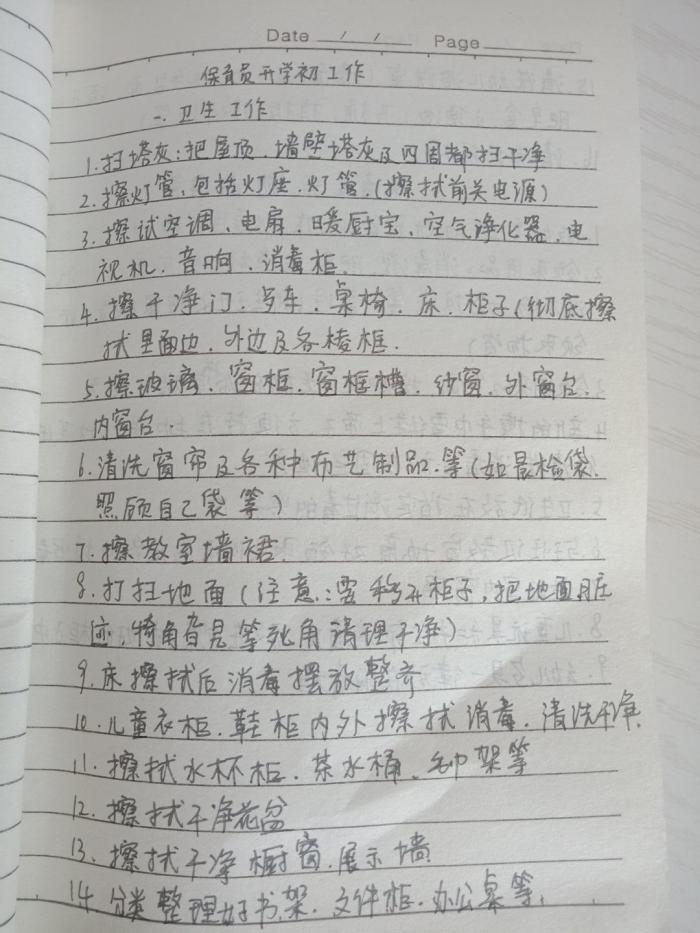 Date / / Page
保育员开学初工作
一、卫生工作
1. 扫塔灰：把屋顶、墙壁塔灰及四周都扫干净
2. 擦灯管，包括灯座、灯管（擦拭前关电源）
3. 擦试空调、电扇、暖厨宝、空气净化器、电
视机、音响、消毒柜.
4. 擦干净门、口车、桌椅、床、柜子（彻底擦
拭里面边、外边及各棱框.
5. 擦玻璃、窗框、窗框槽、纱窗、外窗台、
内窗台.
6. 清洗窗帘及各种布艺制品.等（如晨检袋、
照顾自己袋等）
7. 擦教室墙裙.
8. 打扫地面（注意：要移开柜子，把地面脏
迹，犄角旮旯等死角清理干净）
9. 床擦拭后消毒摆放整齐
10. 儿童衣柜、鞋柜内外擦拭消毒、清洗干净.
11. 擦拭水杯柜、茶水桶、毛巾架等
12. 擦拭干净花盆
13. 擦拭干净橱窗.展示墙
14. 分类整理好书架、文件柜、办公桌等，